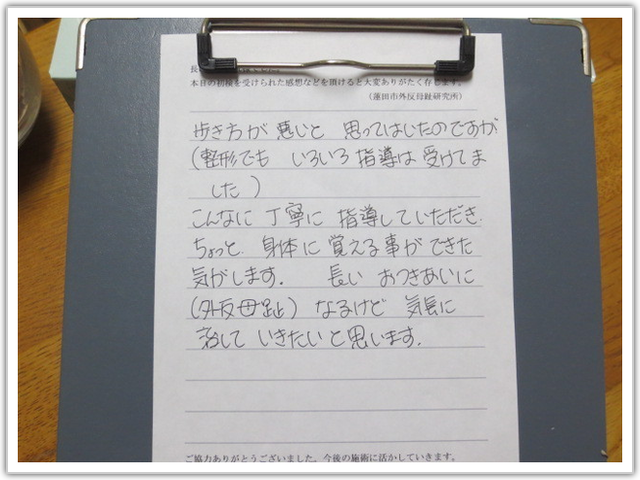 本日の初検を受けられた感想などを頂けると大変ありがたく存じます。
(蓮田市外反母趾研究所)
歩き方が悪いと 思ってはいたのですが
(整形でも いろいろ指導は受けてま
した)
こんなに丁寧に指導していただき、
ちょっと、身体に覚える事ができた
気がします。 長い おつきあいに
(外反母趾) なるけど 気長に
治して いきたいと思います。
ご協力ありがとうございました。今後の施術に活かしていきます。